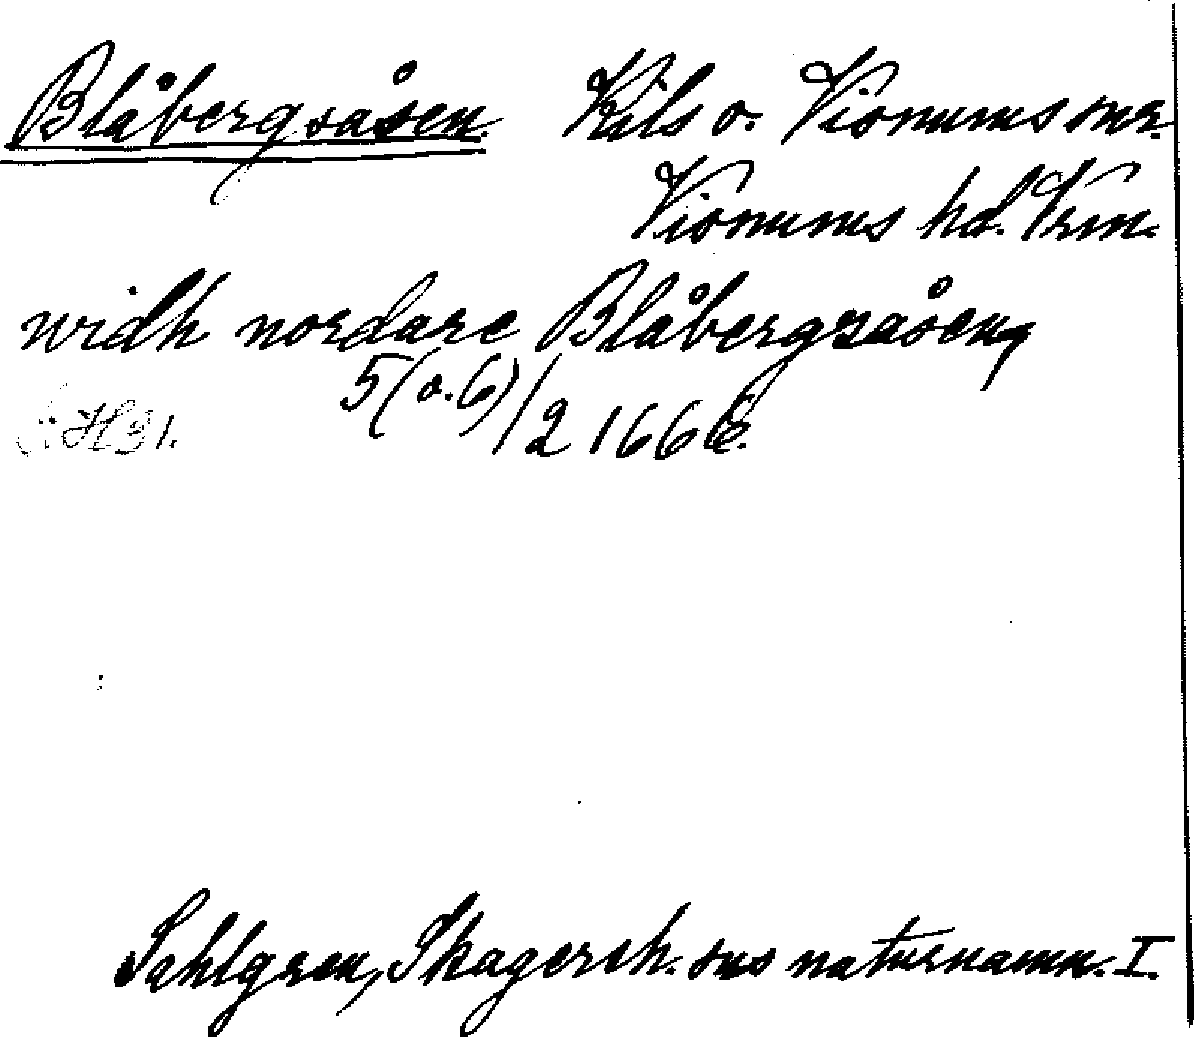 Blåbergsåsen. Kils o. Visnums snr.
Visnums hd. Vrm.
widh nordare Blåbergzåsen,
5(o.6)/2 1666.
H31.
Sahlgren, Skagersh. sns naturnamn. I.